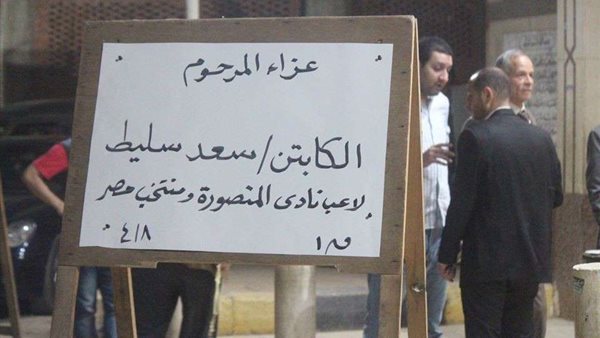 عزاء المرحوم
الكابتن/سعد سليط
لاعب نادى المنصورة ومنتخب مصر
ق ١
٤/٨